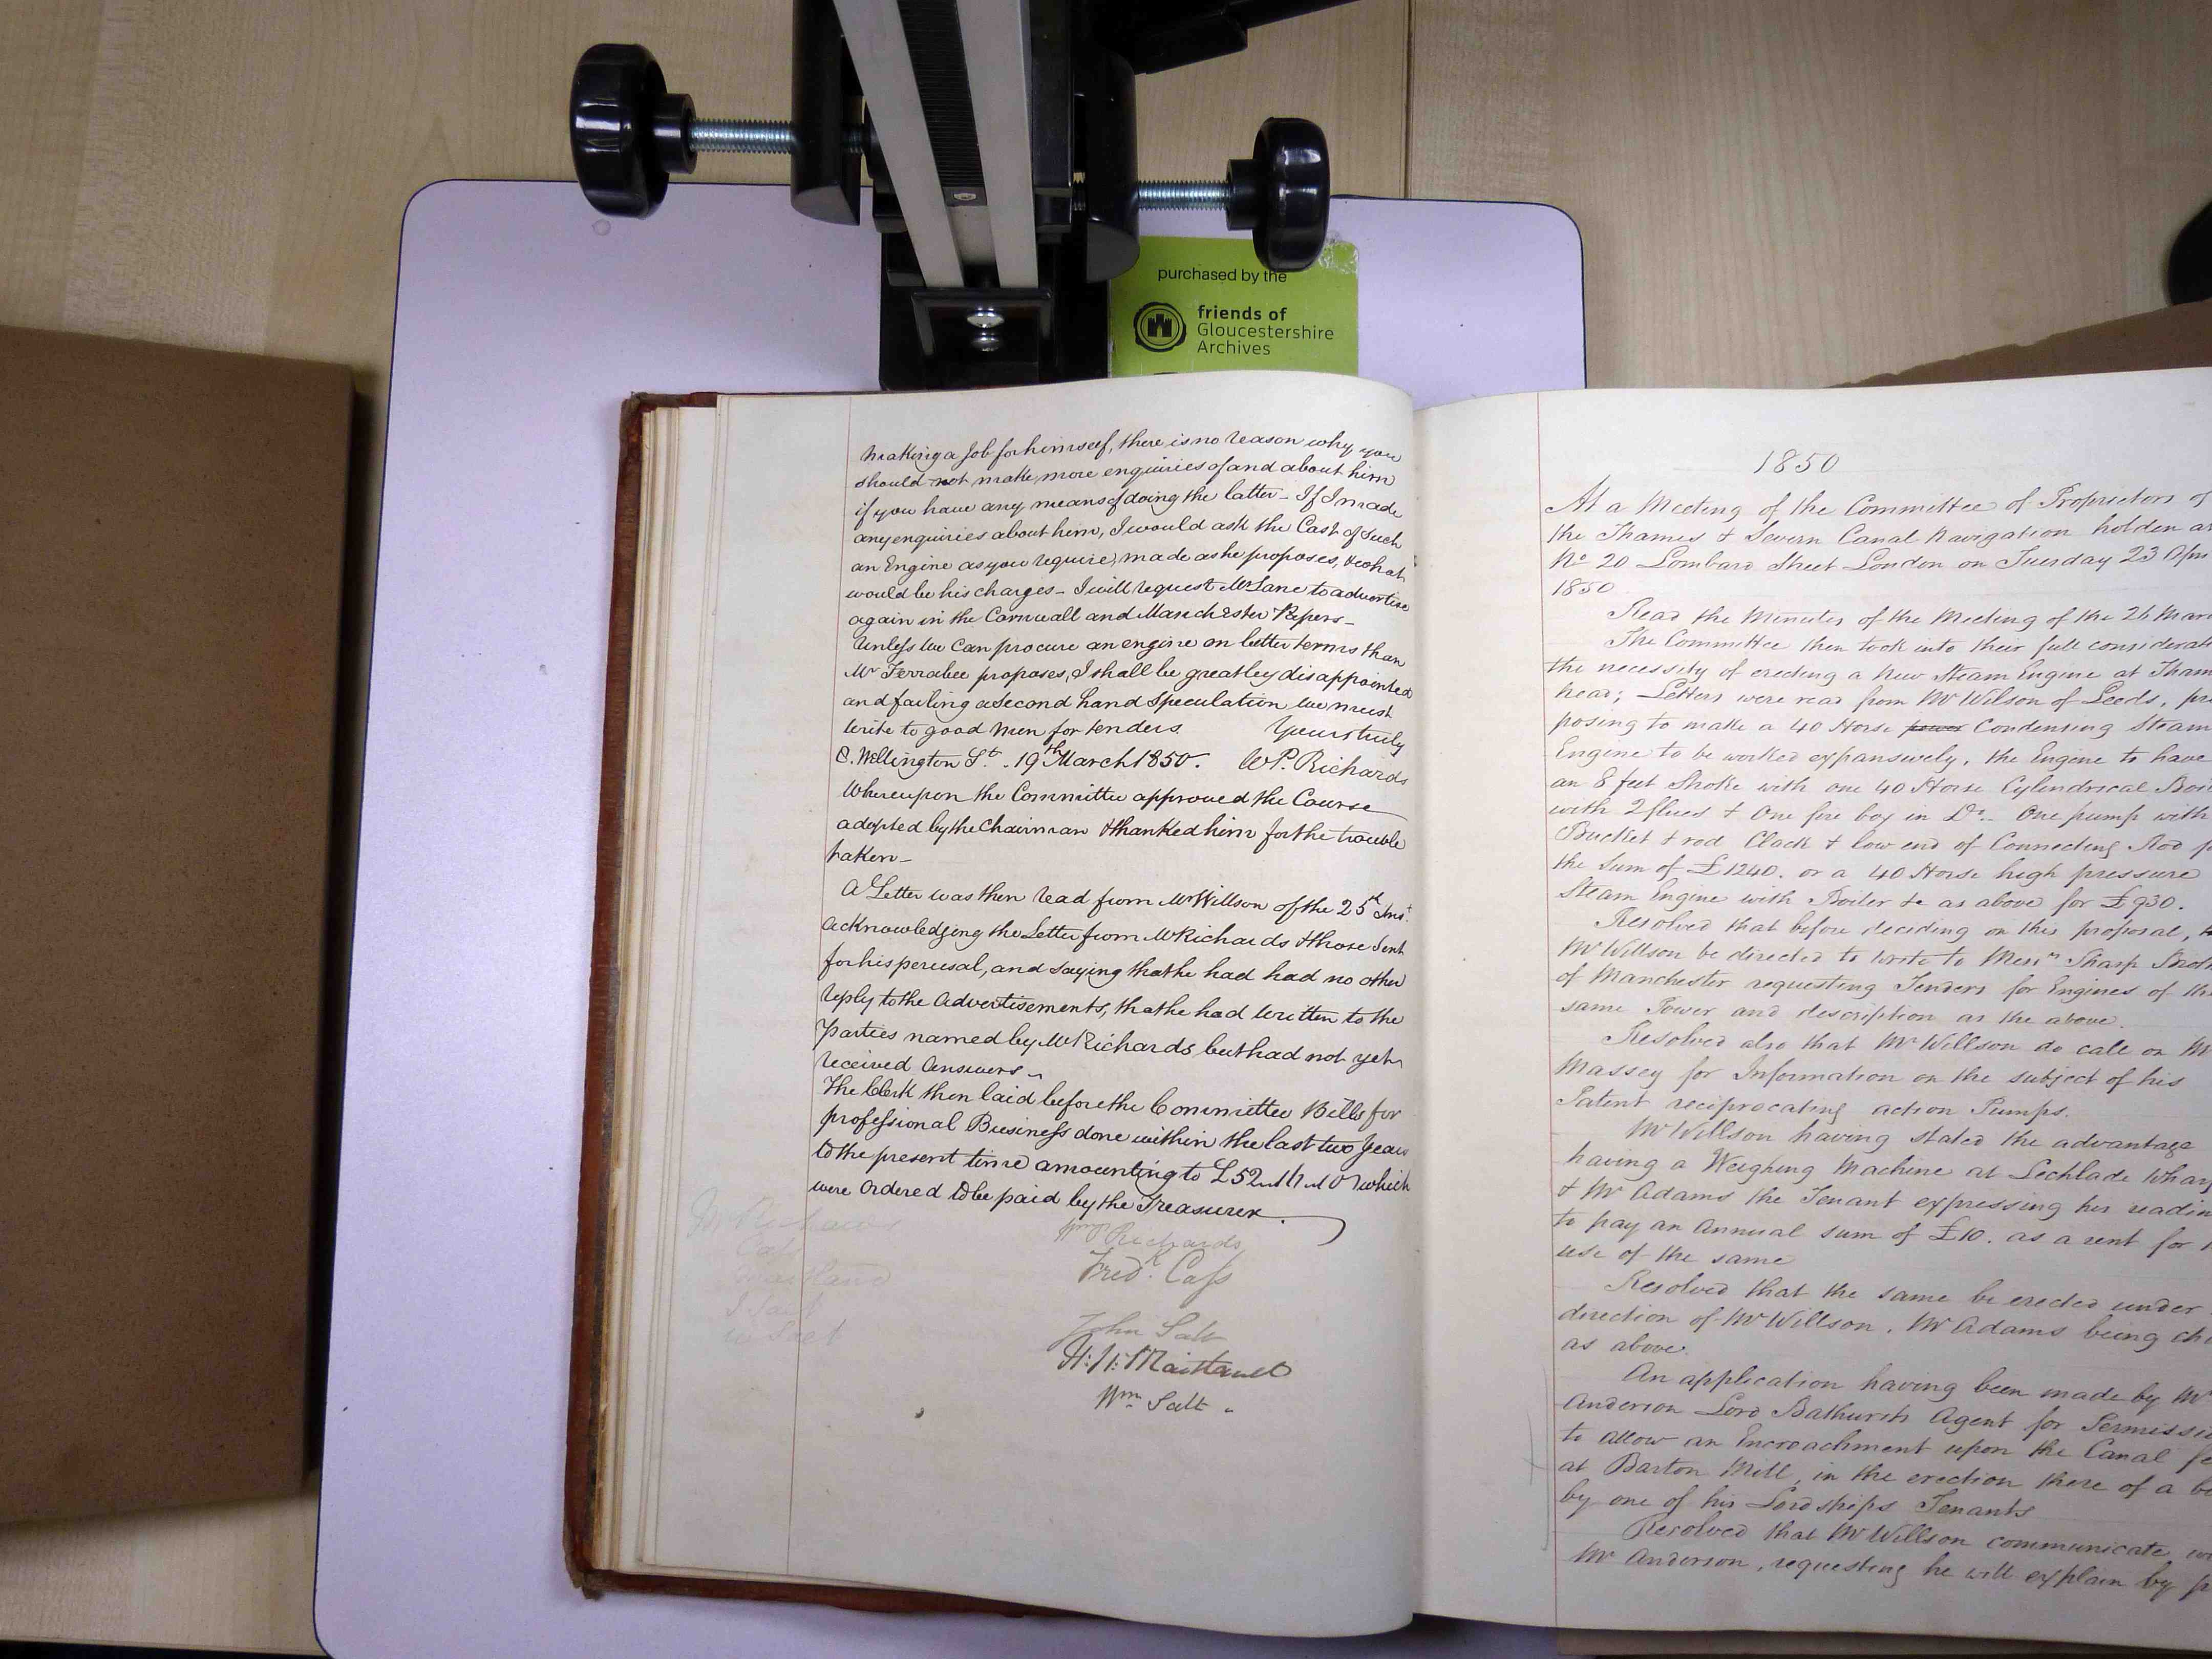 purchased by the
friends of
Gloucestershire
Archives
making a Job for himself, there is no reason why you
should not make more enquiries of and about him
if you have any means of doing the latter - If I made
any enquiries about him, I would ask the Cost of such
an Engine as you require, made as he proposes, & what
would be his charges - I will request Mr Lane to advertise
again in the Cornwall and Manchester Papers -
Unless we can procure an engine on better terms than
Mr Ferrabee proposes, I shall be greatley disappointed
and failing a second hand speculation we must
write to good men for tenders. Yours truly
C. Wellington St. 19th March 1850. W P. Richards
Whereupon the Committee approved the Course
adopted by the Chairman & thanked him for the trouble
taken -
A Letter was then read from Mr Willson of the 25th Inst.
acknowledging the Letter from Mr Richards & those sent
for his perusal, and saying that he had had no other
reply to the Advertisements, that he had written to the
Parties named by Mr Richards but had not yet
received Answers -
The Clerk then laid before the Committee Bills for
professional Business done within the last two Years
to the present time amounting to £52 which
were ordered to be paid by the Treasurer.
Wm P Richards
Fredk. Cass
John Salt
Maitland
Wm Salt
Mr Richards
Cass
Maitland
J Salt
W Salt
1850
At a Meeting of the Committee of Proprietors of
the Thames & Severn Canal Navigation holden at
No 20 Lombard Street London on Tuesday 23 Apri
1850
Read the Minutes of the Meeting of the 26 Marc
The Committee then took into their full considerati
the necessity of erecting a New Steam Engine at Tham
head; Letters were read from Mr Wilson of Leeds, pro
posing to make a 40 Horse power Condensing Steam
Engine to be worked expansively, the Engine to have
an 8 feet Stroke with one 40 Horse Cylindrical Boil
with 2 flues & One fire box in Do. - One pump with
Bucket & rod Clack & low end of Connecting Rod f
the Sum of £1240. or a 40 Horse high pressure
Steam Engine with Boiler &c as above for £930.
Resolved that before deciding on this proposal, th
Mr Willson be directed to write to Messrs Sharp Broth
of Manchester requesting Tenders for Engines of the
same Power and description as the above.
Resolved also that Mr Willson do call on Mr
Massey for Information on the subject of his
Patent reciprocating action Pumps.
Mr Willson having stated the advantage
having a Weighing Machine at Lechlade Wharf
& Mr Adams the Tenant expressing his readin
to pay an Annual sum of £10. as a rent for
use of the same
Resolved that the same be erected under
direction of Mr Willson, Mr Adams being ch
as above.
An application having been made by Mr
Anderson Lord Bathursts Agent for Permissi
to allow an Encroachment upon the Canal fe
at Barton Mill, in the erection there of a b
by one of his Lordships Tenants
Resolved that Mr Willson communicate w
Mr Anderson, requesting he will explain by p